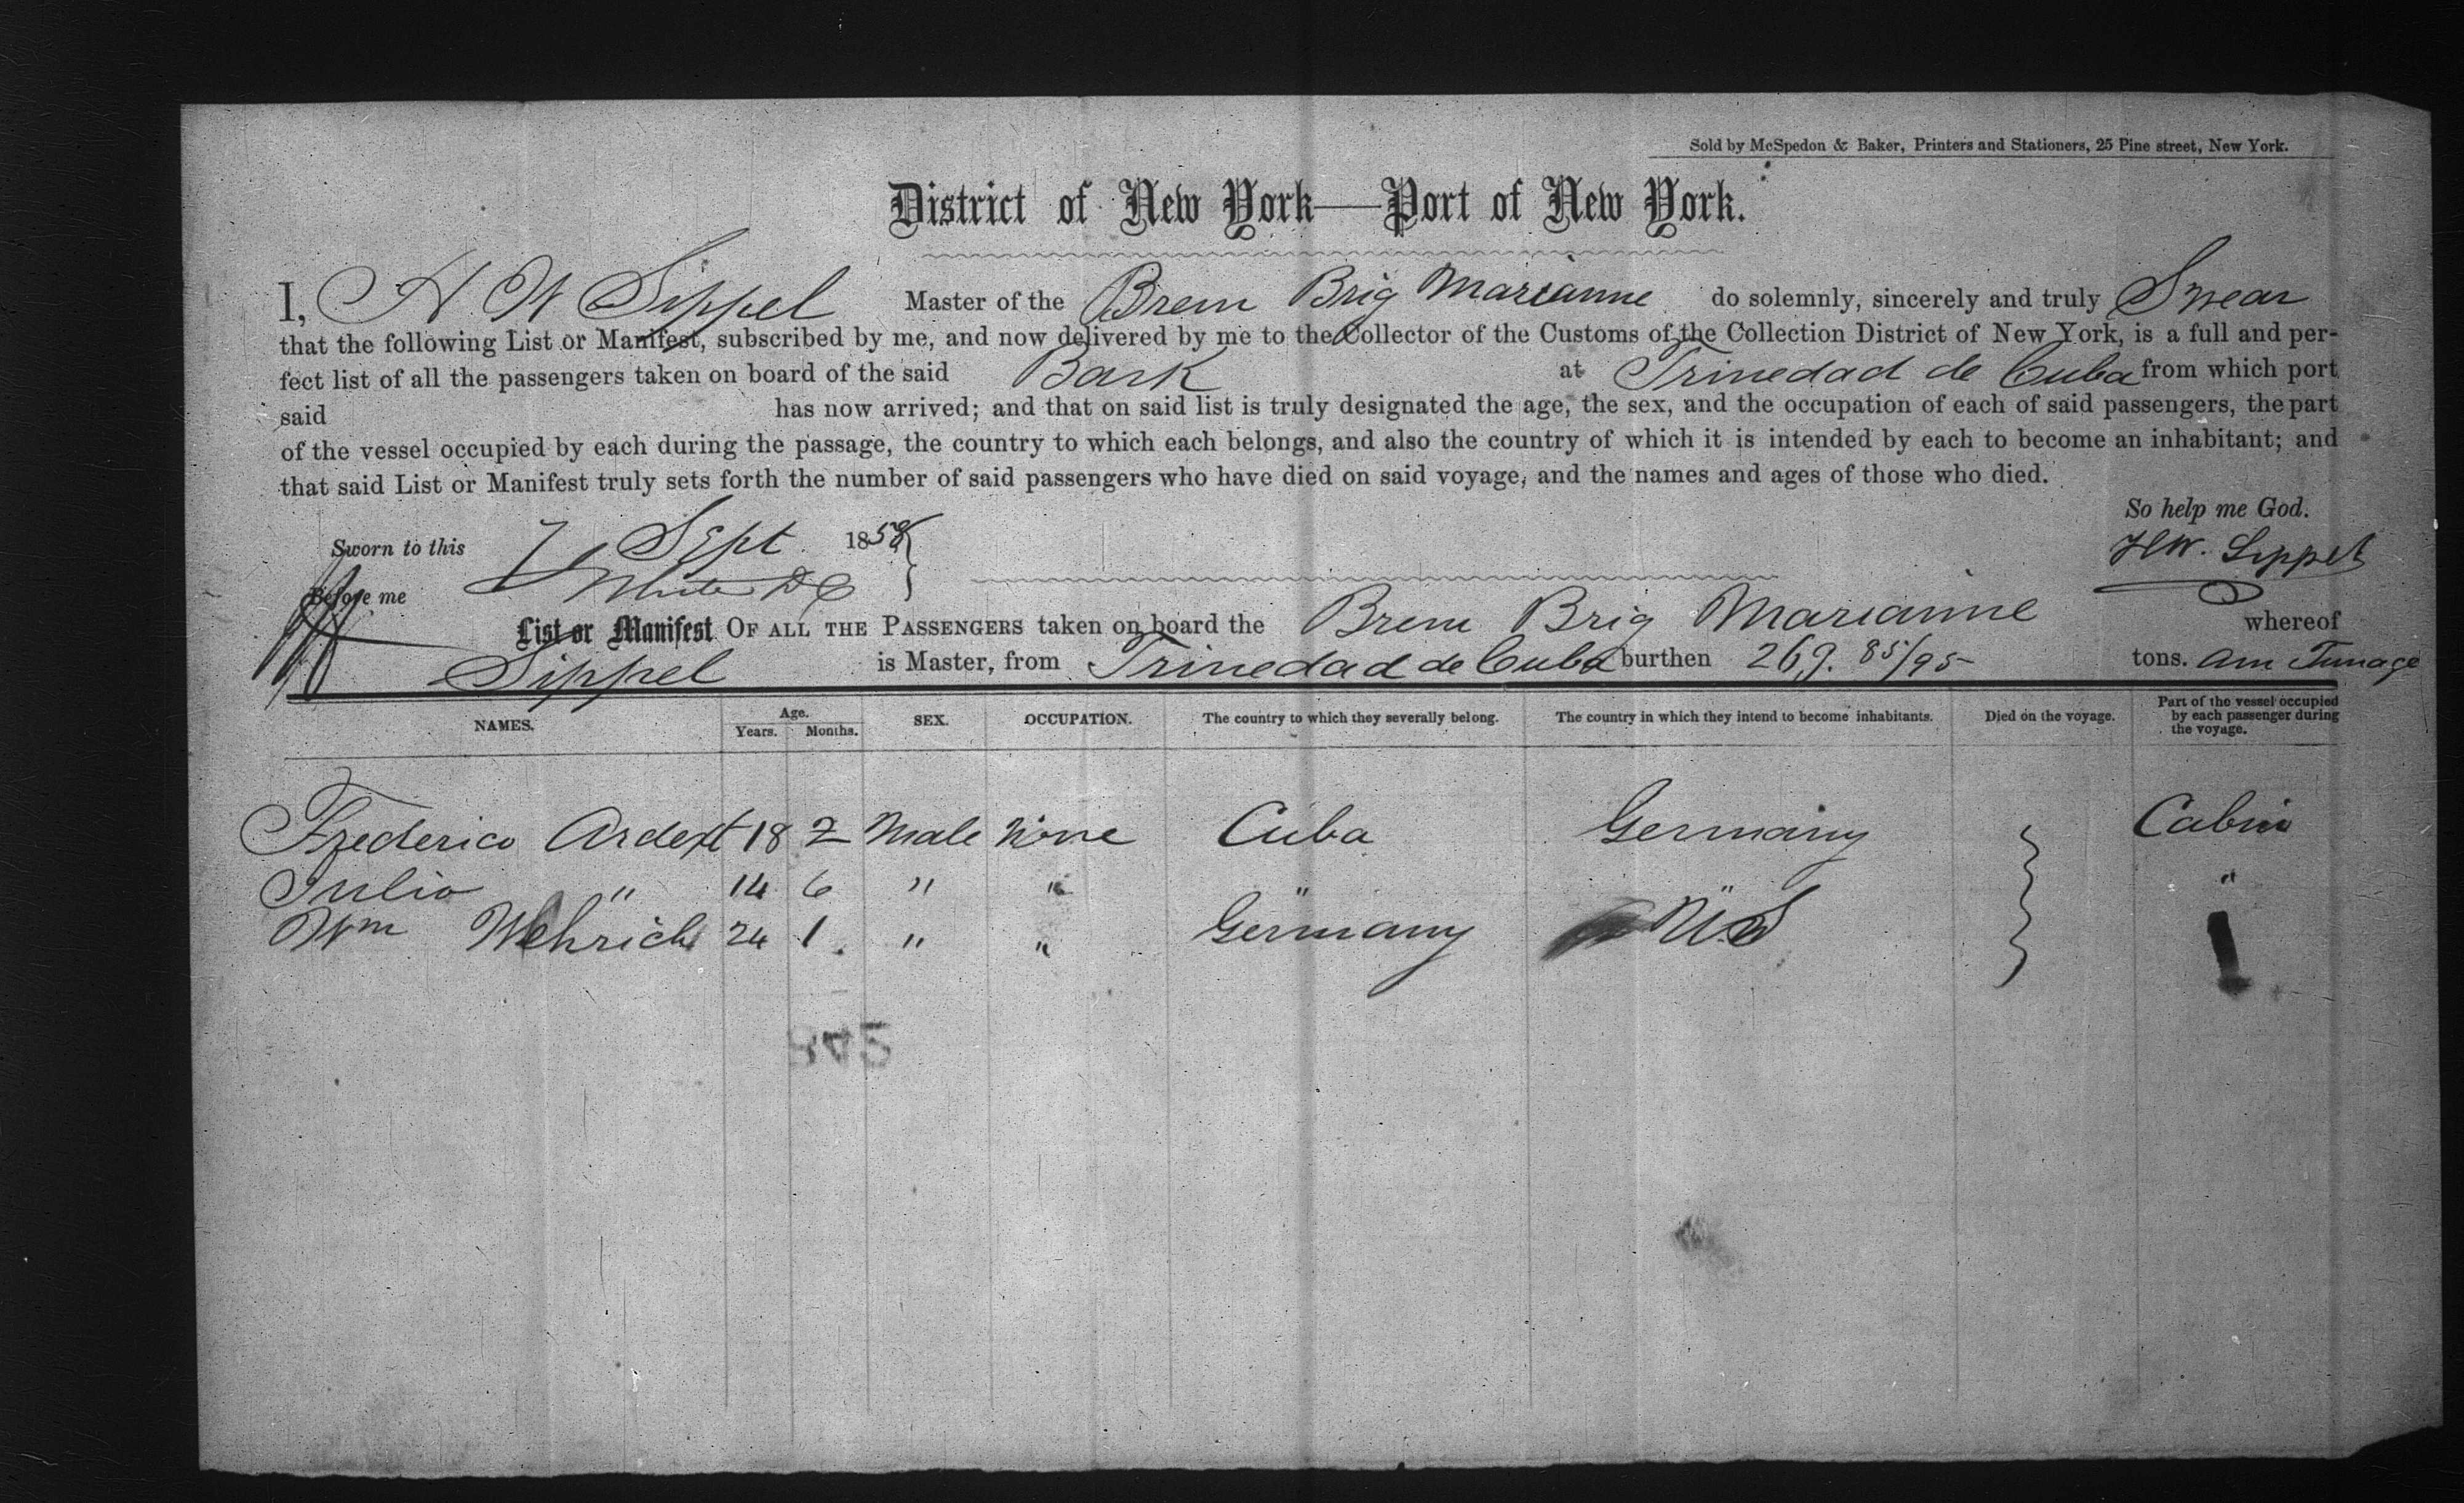 Sold by McSpedon & Baker, Printers and Stationers, 25 Pine street, New York.
District of New York—Port of New York.
I, H W Sippel Master of the Brem Brig Marianne do solemnly, sincerely and truly Swear
that the following List or Manifest, subscribed by me, and now delivered by me to the Collector of the Customs of the Collection District of New York, is a full and per-
fect list of all the passengers taken on board of the said Bark at Trinedad de Cuba from which port
said has now arrived; and that on said list is truly designated the age, the sex, and the occupation of each of said passengers, the part
of the vessel occupied by each during the passage, the country to which each belongs, and also the country of which it is intended by each to become an inhabitant; and
that said List or Manifest truly sets forth the number of said passengers who have died on said voyage, and the names and ages of those who died.
So help me God.
Sworn to this 7 Sept 1858
HW. Sippel
Before me White
List or Manifest OF ALL THE PASSENGERS taken on board the Brem Brig Marianne whereof
Sippel is Master, from Trinedad de Cuba burthen 269. 85/95 tons. Am Tunage
NAMES. Age. Years. Months. SEX. OCCUPATION. The country to which they severally belong. The country in which they intend to become inhabitants. Died on the voyage. Part of the vessel occupied by each passenger during the voyage.
Frederico 18 2 Male None Cuba Germany Cabin
Julio " 14 6 " " " " "
Wm 24 1 " " Germany U.S
842